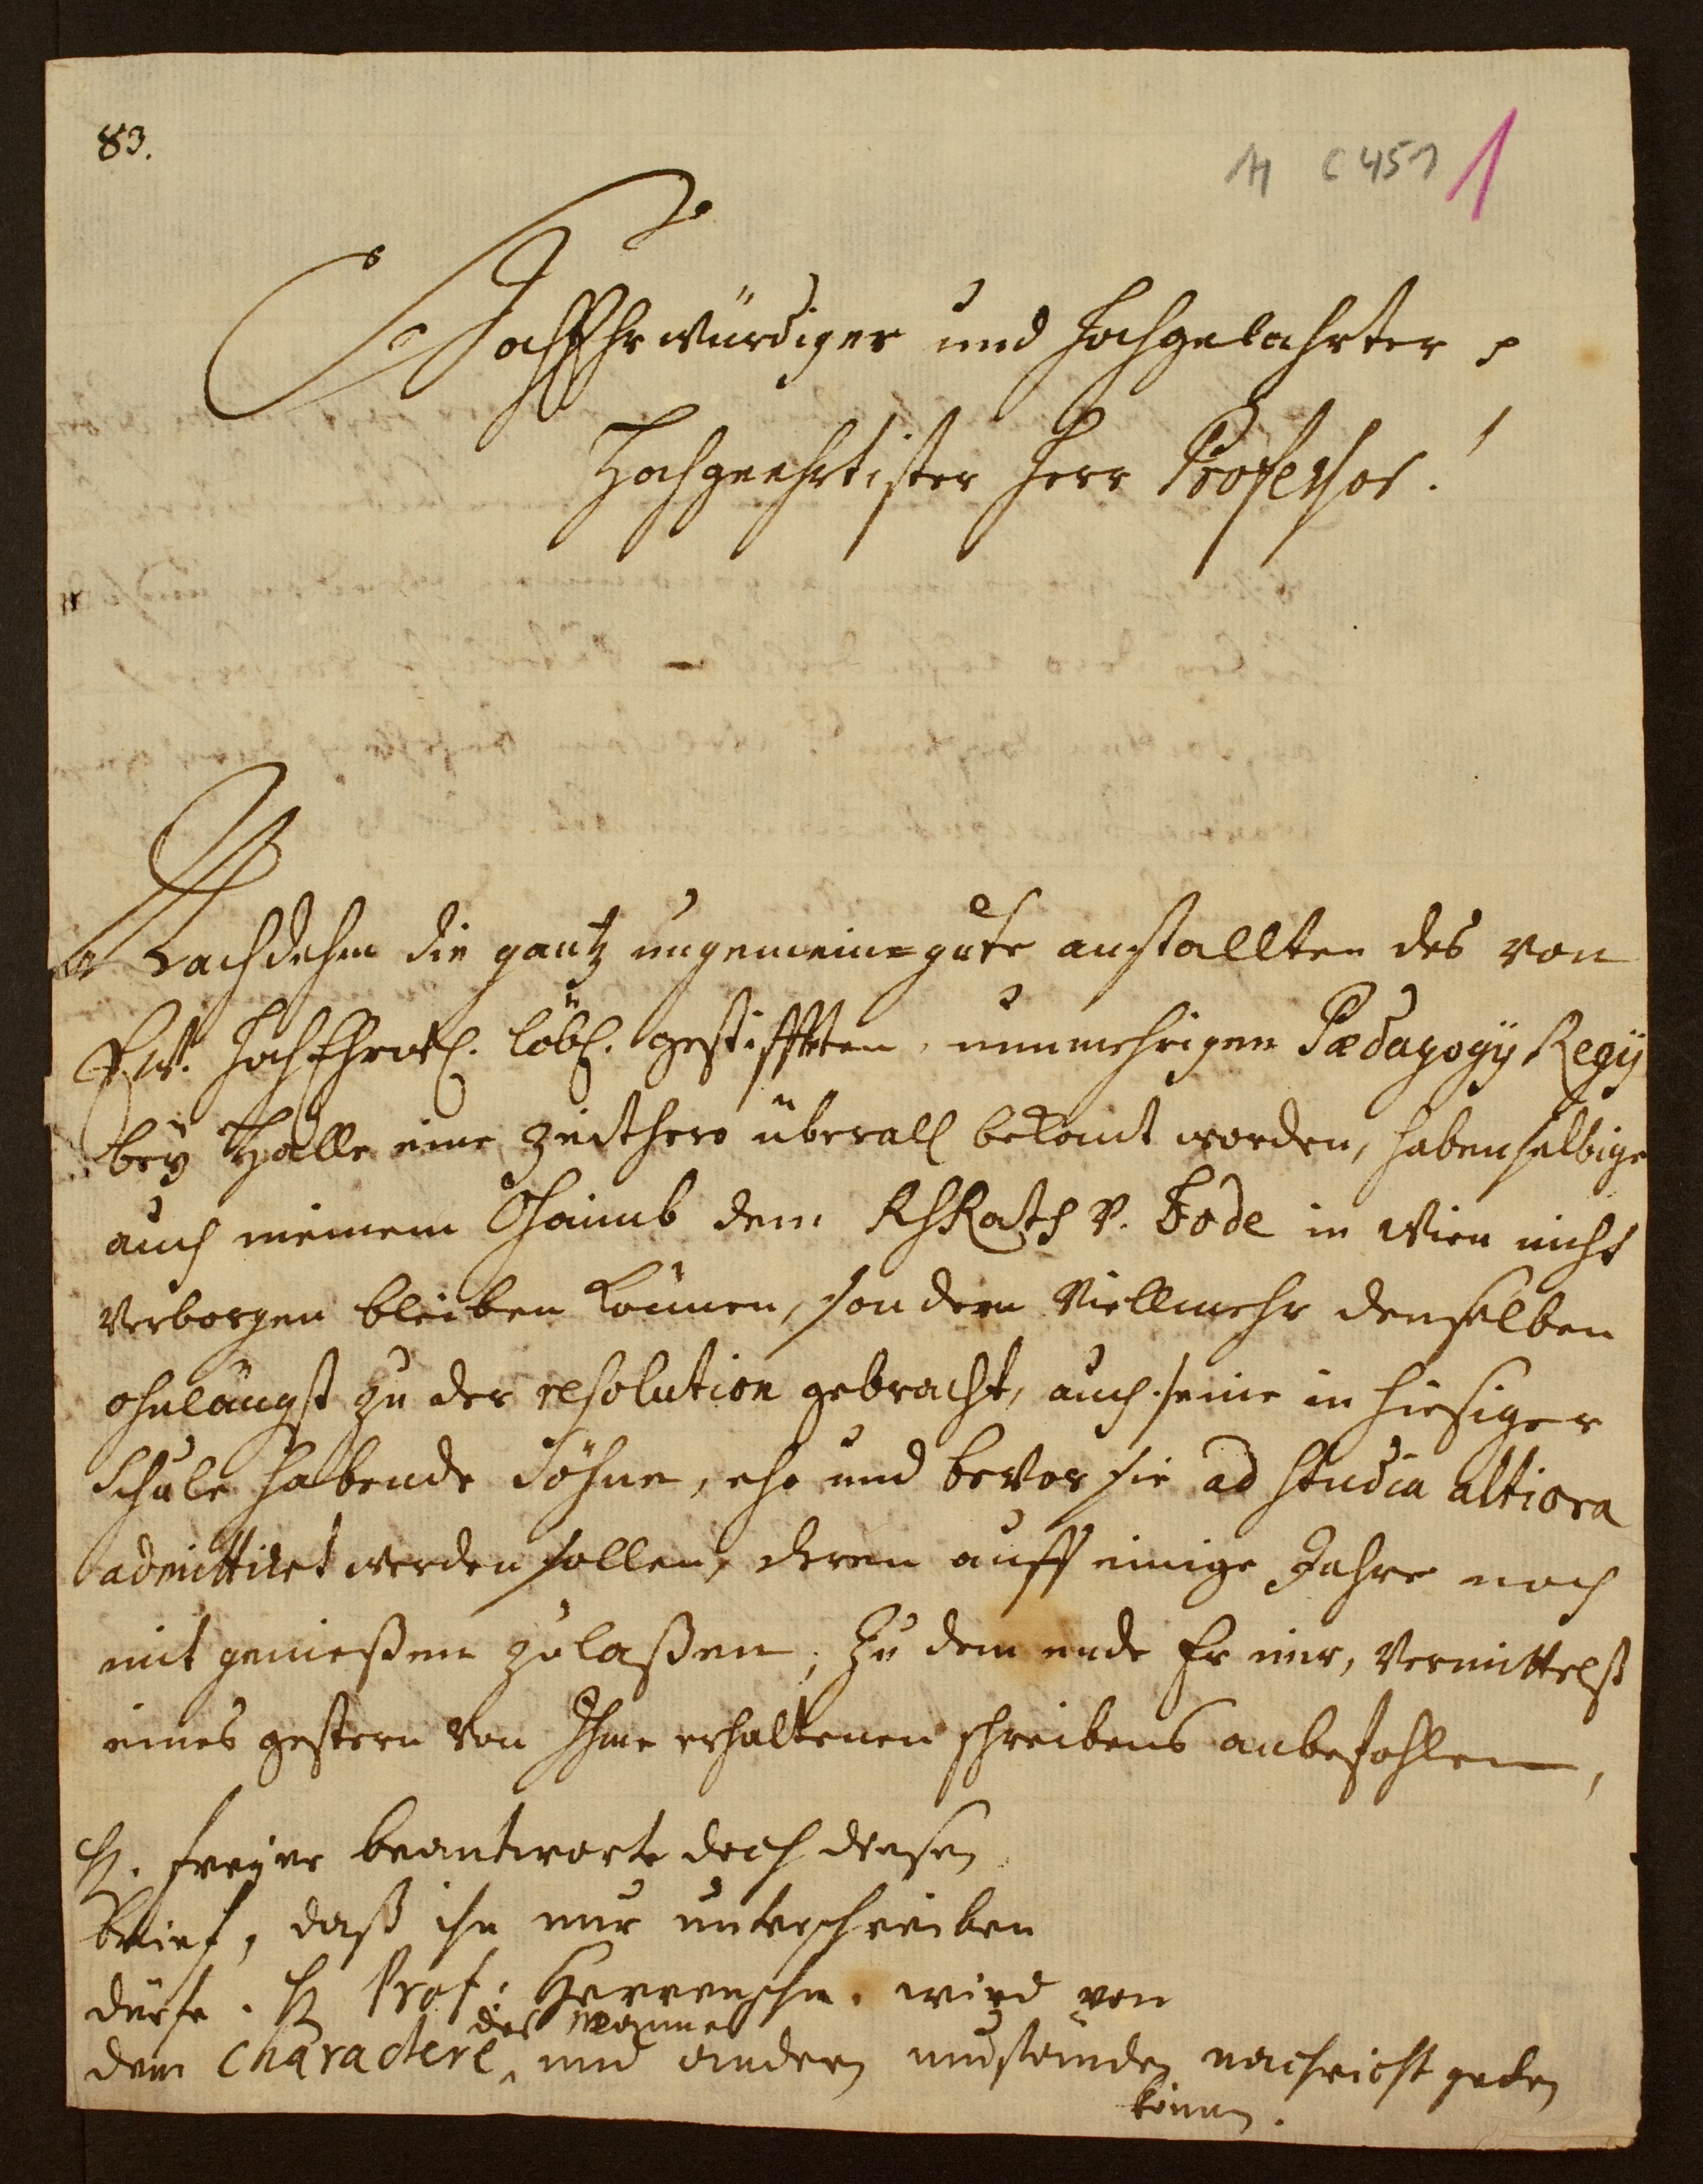 83.
H C 451 1
HochEhrwürdiger und Hochgelahrter p
Hochgeehrtister Herr Professor!
Nachdehm die gantz ungemein=gute anstallten des von
Ew. HochEhrw. löbl. gestiffteten, nunmehrigen Pædagogÿ Regÿ
beÿ Halle eine Zeithero überall bekandt worden, haben selbige
auch meinem Ohaimb dem RhRath v. Bode in Wien nicht
verborgen bleiben können, sondern Viellmehr denselben
ohnlängst zu der resolution gebracht, auch seine in hiesiger
Schule habende Söhne, ehe und bevor sie ad studia altiora
admittiret werden sollen, deren auff einige Jahre noch
mit genießen zulaßen; Zu dem ende Er mir, Vermittelst
eines gestern von Ihme erhaltenen schreibens anbefohlen,
H. Freyer beantworte doch diesen
Brief, daß ihn nur unterschreiben
dürfe. H Prof. Herrnschm. wird von
dem Charactere des Mannes und andern umständen nachricht geben
können.